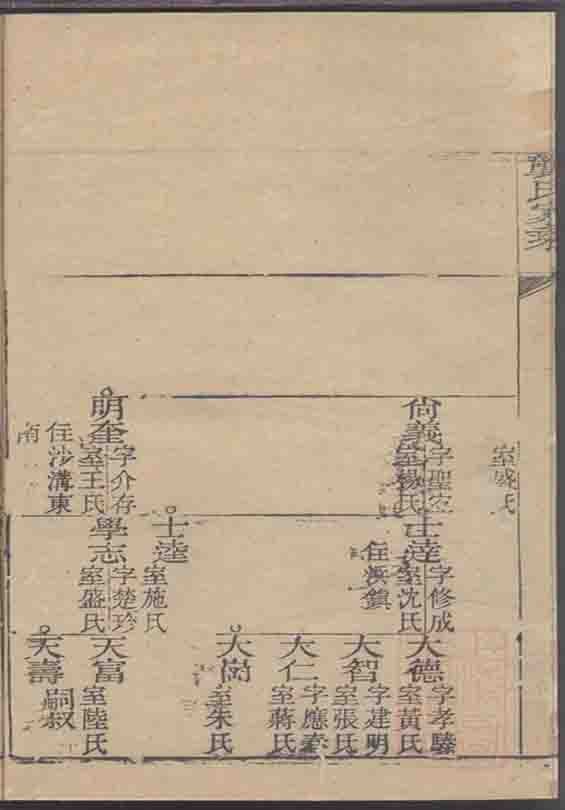 室盛氏
尚義
字聖
室楊氏
士逵
字修成
室沈氏
住鎮
大德
字孝
室黃氏
大智
字建明
室張氏
大仁
字應
室蔣氏
大
室朱氏
士逵
室施氏
明奎
字介存
室王氏
住沙溝東
南
學志
字楚珍
室盛氏
天富
室陸氏
天壽
嗣叔